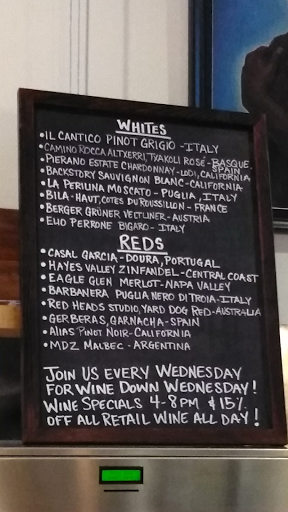 WHITES
•IL CANTICO PINOT GRIGIO - ITALY
•CAMINO ROCCA ALTXERRI, TXAKOLI ROSÉ - BASQUE, SPAIN
•PIERANO ESTATE CHARDONNAY - LODI, CALIFORNIA
•BACKSTORY SAUVIGNON BLANC - CALIFORNIA
•LA PERLINA MOSCATO - PUGLIA, ITALY
•BILA-HAUT, COTES DU ROUSSILLON - FRANCE
•BERGER GRÜNER VETLINER - AUSTRIA
•ELIO PERRONE BIGARO - ITALY
REDS
•CASAL GARCIA - DOURA, PORTUGAL
•HAYES VALLEY ZINFANDEL - CENTRAL COAST
•EAGLE GLEN MERLOT - NAPA VALLEY
•BARBANERA PUGLIA NERO DI TROIA - ITALY
•RED HEADS STUDIO, YARD DOG RED - AUSTRALIA
•GERBERAS, GARNACHA - SPAIN
•ALIAS PINOT NOIR - CALIFORNIA
•MDZ MALBEC - ARGENTINA
JOIN US EVERY WEDNESDAY
FOR WINE DOWN WEDNESDAY!
WINE SPECIALS 4-8PM & 15%
OFF ALL RETAIL WINE ALL DAY!